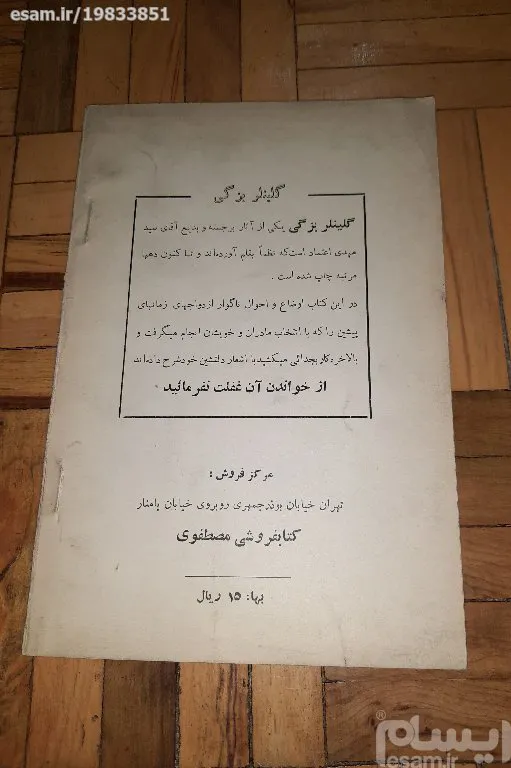 esam.ir/19833851
گلینلر بزگی
گلینلر بزگی یکی از آثار برجسته و بدیع آقای سید
مهدی اعتماد است که نظماً بقلم آورده‌اند و تا کنون دهها
مرتبه چاپ شده است .
در این کتاب اوضاع و احوال ناگوار ازدواجهای زمانهای
پیشین را که با انتخاب مادران و خویشان انجام میگرفت و
بالاخره کار بجدائی میکشید با اشعار دلنشین خود شرح داده‌اند
از خواندن آن غفلت نفرمائید .
مرکز فروش :
تهران خیابان بوذرجمهری روبروی خیابان پامنار
کتابفروشی مصطفوی
بها: ۱۵ ریال
ایسام ®
esam.ir